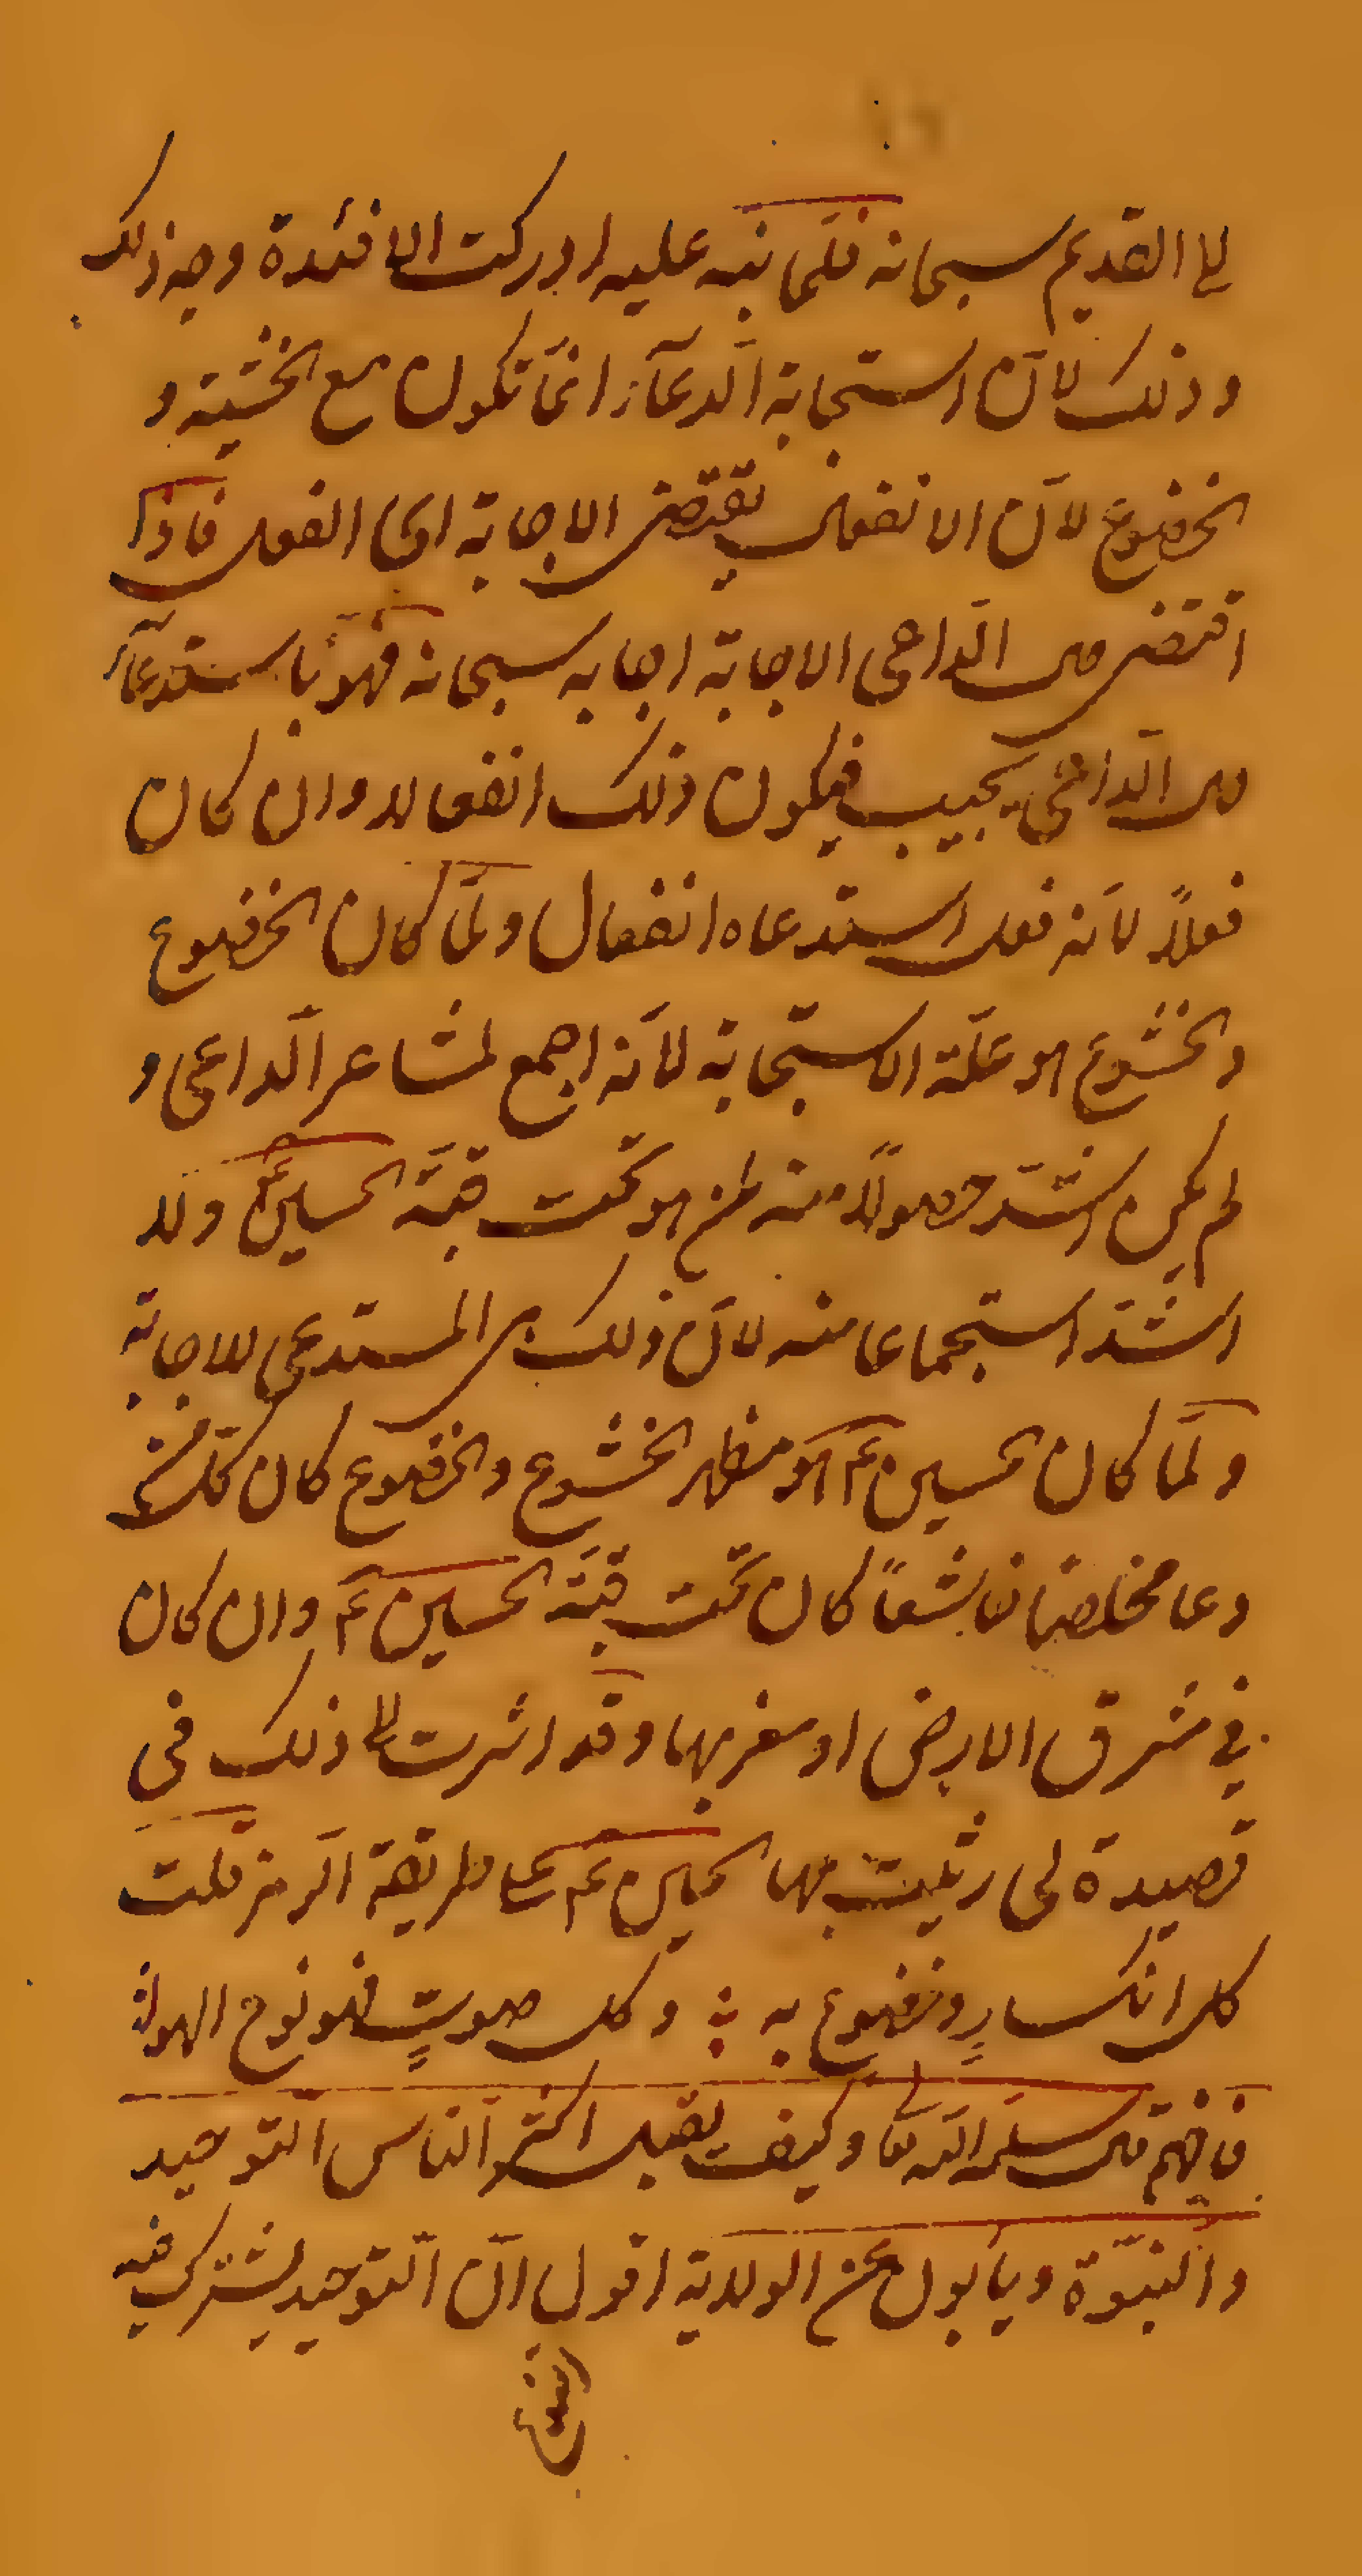 الى القديم سبحانه فلما نبه عليه ادركت الافئدة وجه ذلك
وذلك لأن استجابة الدعآء انما تكون مع الخشية و
الخضوع لأن الانفعال يقتضى الاجابة اى الفعل فاذا
اقتضى من الداعى الاجابة اجابه سبحانه فهو باستدعآء
من الداعى يجيب فيكون ذلك انفعالا وان كان
فعلاً لأنه فعل استدعاه انفعال ولما كان الخضوع
والخشوع هو علة الاستجابة لأنه اجمع لمشاعر الداعى و
لم يكن اشد حصولاً منه لمن هو تحت قبة الحسين ع ولا
اشد استجماعا منه لأن ذلك من المستدعى للاجابة
ولما كان الحسين ع هو مظهر الخشوع والخضوع كان كل من
دعا مخلصا خاشعاً كان تحت قبة الحسين ع وان كان
فى مشرق الارض او مغربها وقد اشرت الى ذلك فى
قصيدة لى رثيت بها الحسين ع على طريقة الرمز قلت
كل انكسارٍ وخضوع به وكل صوتٍ فهو نوح الهواء
فافهم قال سلمه الله تعا وكيف يقبل اكثر الناس التوحيد
والنبوّة ويأبون عن الولاية اقول ان التوحيد يشترك فيه